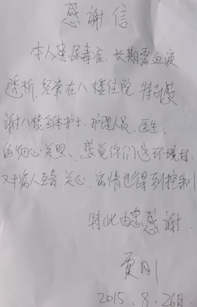 感谢信
本人患尿毒症,长期需血液
透析,免费在八楼住院,特别感
谢八楼全体护士、护理人员、医生,
的细心关照、感觉你们这环境好,
对病人至善关心、病情也得到控制
特此由衷感谢
贾刚
2015.8.26日